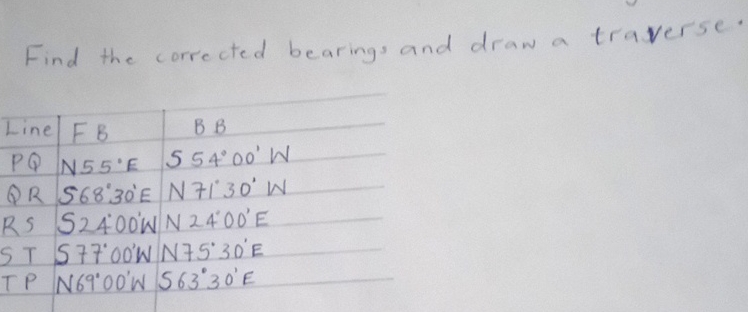 Find the corrected bearings and draw a traverse.
Line FB BB
PQ N55°E S54°00'W
QR S68°30'E N71°30'W
RS S24°00'W N24°00'E
ST S77°00'W N75°30'E
TP N69°00'W S63°30'E